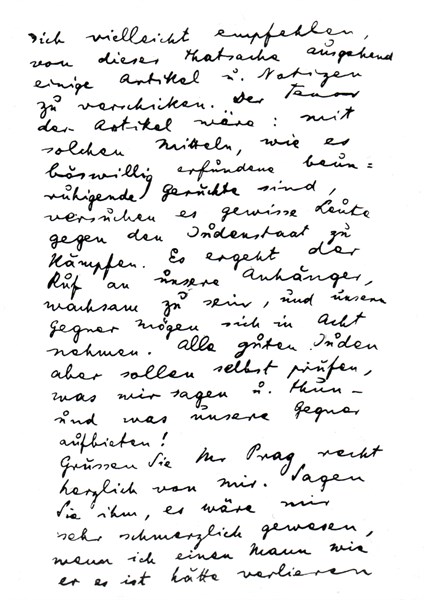 sich vielleicht empfehlen,
von dieser Thatsache ausgehend
einige Artikel u. Notizen
zu verschicken. Der Tenor
der Artikel wäre: mit
solchen Mitteln, wie es
böswillig erfundene beun=
ruhigende Gerüchte sind,
versuchen es gewisse Leute
gegen den Judenstaat zu
kämpfen. Es ergeht der
Ruf an unsere Anhänger,
wachsam zu sein, und unsere
Gegner mögen sich in Acht
nehmen. Alle guten Juden
aber sollen selbst prüfen,
was wir sagen u. thun –
und was unsere Gegner
aufbieten!
Grüssen Sie Mr Prag recht
herzlich von mir. Sagen
Sie ihm, es wäre mir
sehr schmerzlich gewesen,
wenn ich einen Mann wie
er es ist hätte verlieren